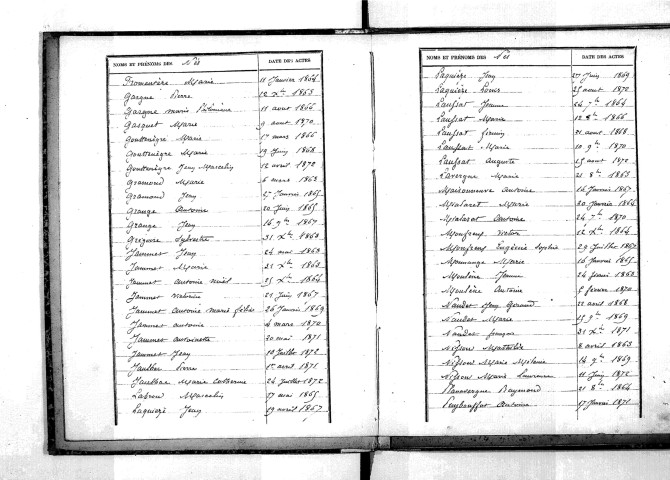 NOMS ET PRÉNOMS DES Nés DATE DES ACTES
Fromentère Marie 11 Janvier 1864
Gargne Pierre 12 Xbre 1863
Gargne Marie 11 aout 1866
Gasquet Marie 9 aout 1870
Gouttenègre Marie 1er mars 1866
Gouttenègre Marie 19 Juin 1868
Gouttenègre Jean Marcelin 12 avril 1872
Gramond Marie 6 mars 1863
Gramond Jean 27 Janvier 1865
Grange Antoine 20 Juin 1865
Grange Jean 16 9bre 1867
Grégoire Sylvestre 31 Xbre 1863
Jammet Jean 24 mai 1863
Jammet Marie 21 Xbre 1863
Jammet Antoine 25 Xbre 1864
Jammet 21 Juin 1867
Jammet Antoine Marie 26 Janvier 1869
Jammet Antoine 4 mars 1870
Jammet Antoinette 20 mai 1871
Jammet Jean 10 Juillet 1872
Jaulhac Pierre 1er avril 1871
Jaulhac Marie Catherine 24 Juillet 1872
Labrou Marcelin 17 mai 1865
Laquièze Jean 19 avril 1867
NOMS ET PRÉNOMS DES Nés DATE DES ACTES
Laquièze Jean 27 Juin 1869
Laquièze Louis 25 aout 1870
Laussat Jeanne 24 7bre 1864
Laussat Marie 12 8bre 1866
Laussat Firmin 21 aout 1868
Laussat Marie 10 9bre 1870
Laussat Auguste 15 aout 1872
Lavergne Marie 21 8bre 1863
Maisonneuve Antoine 16 Janvier 1867
Malaret Marie 20 Janvier 1866
Malaret Antoine 24 7bre 1870
Monfreux 12 Xbre 1864
Monfreux Eugénie Sophie 29 Juillet 1867
Monnange Marie 16 Janvier 1865
Moulène Jeanne 24 février 1863
Moulène Antoine 5 février 1870
Naudet Jean Géraud 22 avril 1868
Naudet Marie 15 9bre 1869
Naudet François 31 Xbre 1871
Nelson Mathilde 8 avril 1863
Nelson Marie Mélanie 14 9bre 1869
Nelson Marie Laurence 11 Juin 1872
Panavergne Raymond 21 8bre 1864
Puybouffat Antoine 17 Janvier 1871